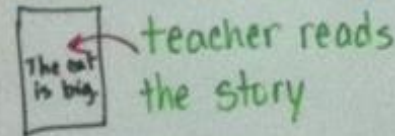 The cat
is big.
teacher reads
the story